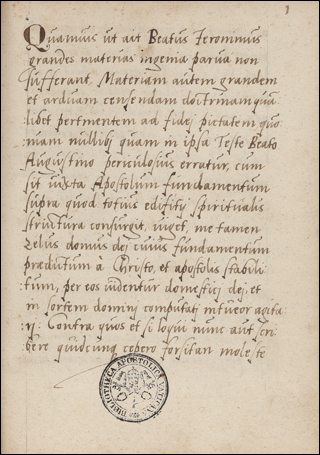 1
Quamuis ut ait Beatus Jeronimus
grandes materias ingenia parua non
sufferant. Materiam autem grandem
et arduam censendam doctrinamqua
libet pertinentem ad fidej pietatem quo
niam nullibj quam in ipsa Teste Beato
Augustino periculosius erratur, cum
sit iuxta Apostolum fundamentum
supra quod totius edifitij spiritualis
structura consurgit, urget, me tamen
zelus domus dej cuius fundamentum
præditum à Christo, et apostolis stabili
tum, per eos uidentur domesticj dej, et
in sortem dominj computatj intueor agita
rj: Contra quos et si loqui nunc aut scri
bere quidcunq cepero forsitan moleste
BIBLIOTHECA APOSTOLICA VATICANA